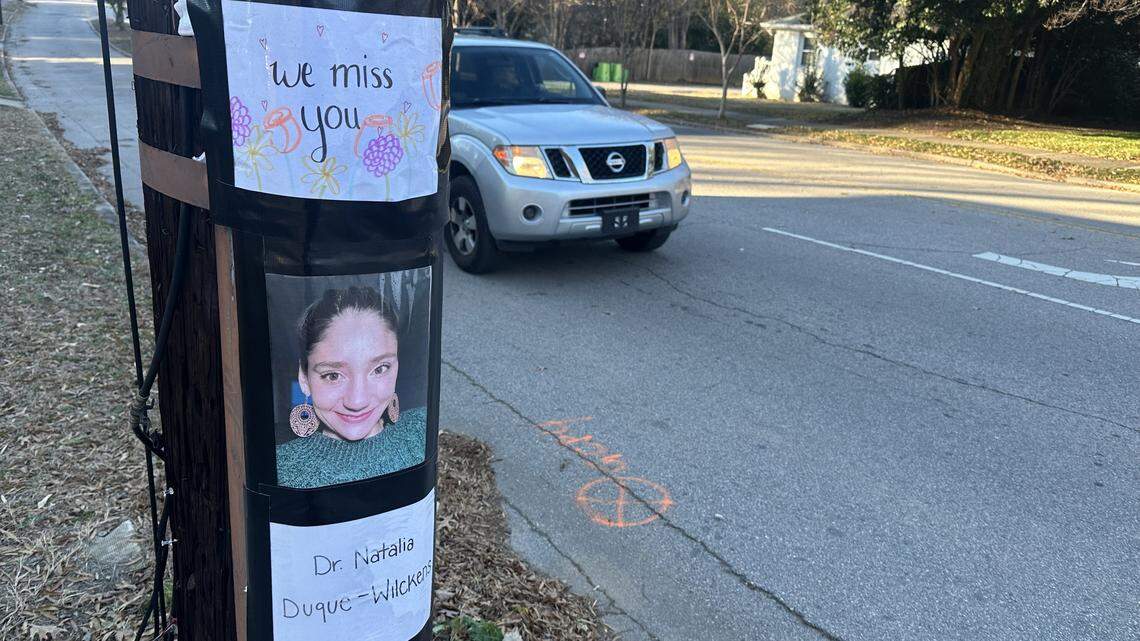 we miss
you
Dr. Natalia
Duque-Wilckens